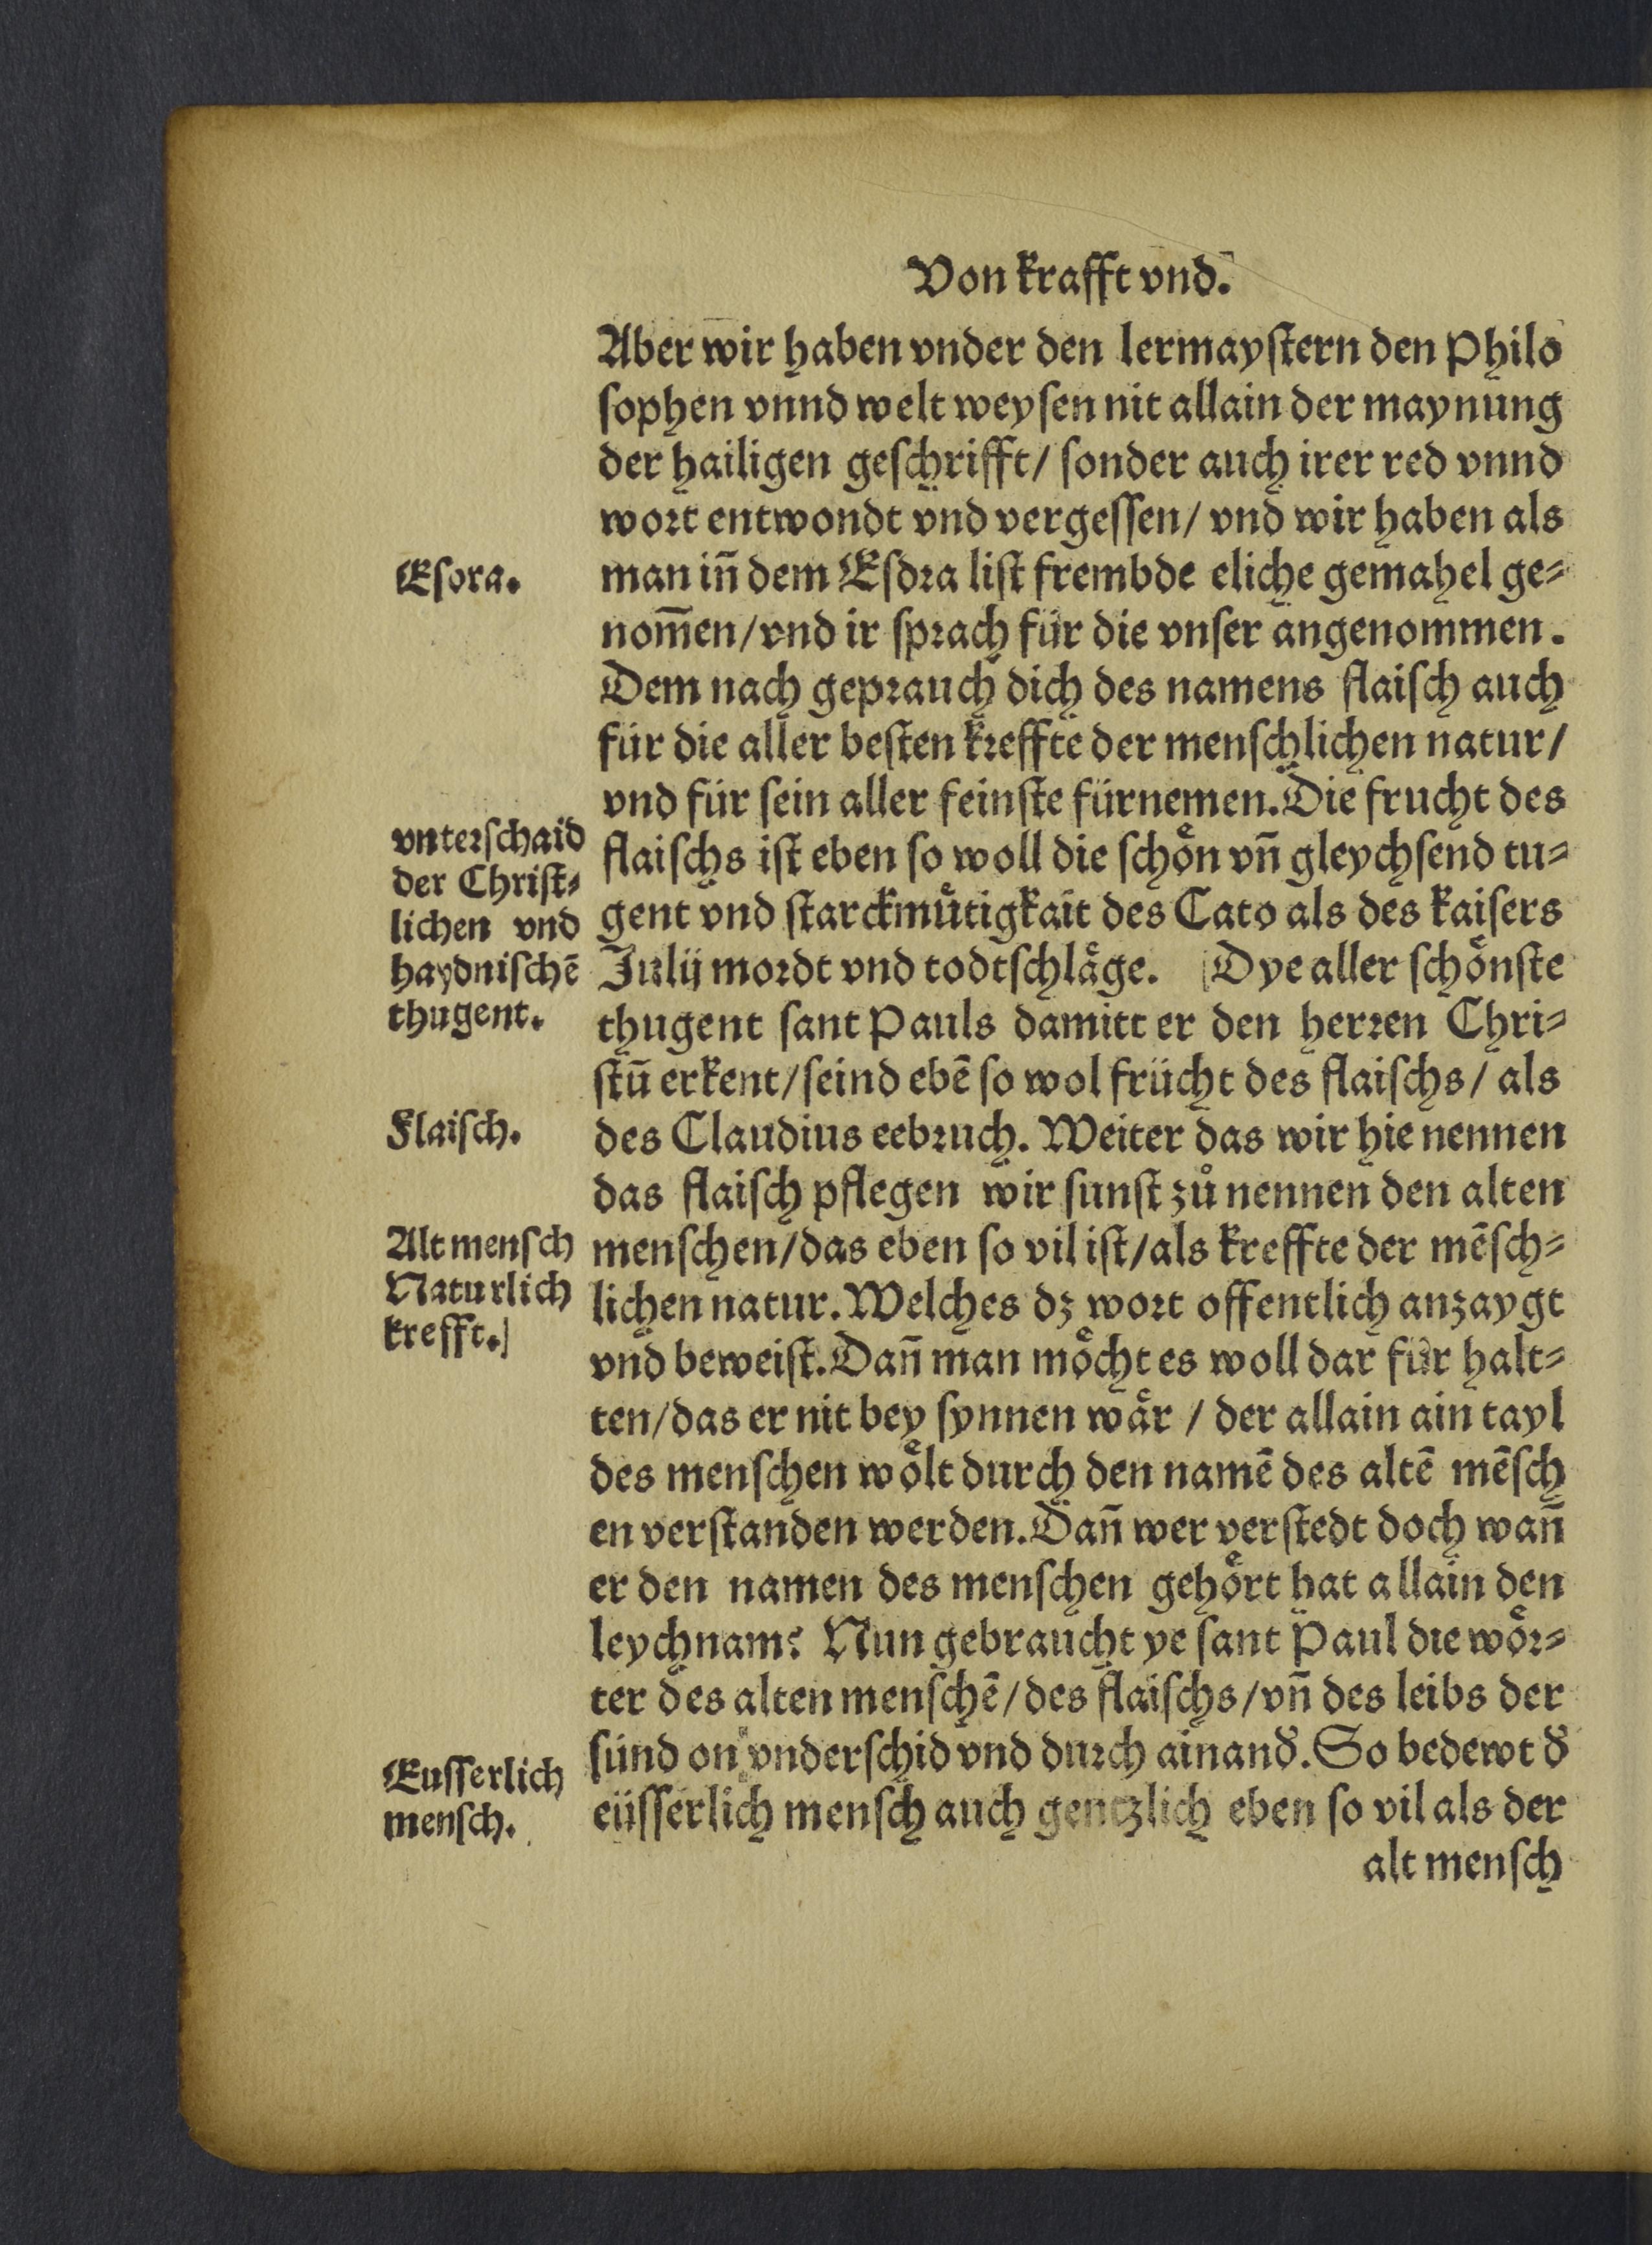 Von krafft vnd.
Aber wir haben vnder den lermayſtern den Philo
ſophen vnnd welt weyſen nit allain der maynung
der hailigen geſchrifft/ ſonder auch irer red vnnd
wort entwondt vnd vergeſſen/ vnd wir haben als
Eſdra.
man iñ dem Eſdra liſt frembde eliche gemahel ge⸗
nom̃en/vnd ir ſprach für die vnſer angenommen.
Dem nach geprauch dich des namens flaiſch auch
für die aller beſten kreffte der menſchlichen natur/
vnd für ſein aller feinſte fürnemen. Die frucht des
vnterſchaid
der Chriſt⸗
lichen vnd
haydniſchẽ
thugent.
flaiſchs iſt eben ſo woll die ſchoͤn vñ gleychſend tu⸗
gent vnd ſtarckmuͤtigkait des Cato als des kaiſers
Julij mordt vnd todtſchlaͤge. Dye aller ſchoͤnſte
thugent ſant Pauls damitt er den herren Chri⸗
ſtũ erkent/ſeind ebẽ ſo wol frücht des flaiſchs/ als
Flaiſch.
des Claudius eebruch. Weiter das wir hie nennen
das flaiſch pflegen wir ſunſt zů nennen den alten
Alt menſch
Naturlich
krefft.
menſchen/das eben ſo vil iſt/als kreffte der mẽſch⸗
lichen natur. Welches dz wort offentlich anzaygt
vnd beweiſt. Dañ man moͤcht es woll dar für halt⸗
ten/das er nit bey ſynnen waͤr / der allain ain tayl
des menſchen woͤlt durch den namẽ des altẽ mẽſch
en verſtanden werden. Dañ wer verſtedt doch wañ
er den namen des menſchen gehoͤrt hat allain den
leychnam? Nun gebraucht ye ſant Paul die woͤr⸗
ter des alten menſchẽ/des flaiſchs/vñ des leibs der
ſünd on vnderſchid vnd durch ainanđ. So bedewt đ
Euſſerlich
menſch.
eüſſerlich menſch auch gentzlich eben ſo vil als der
alt menſch